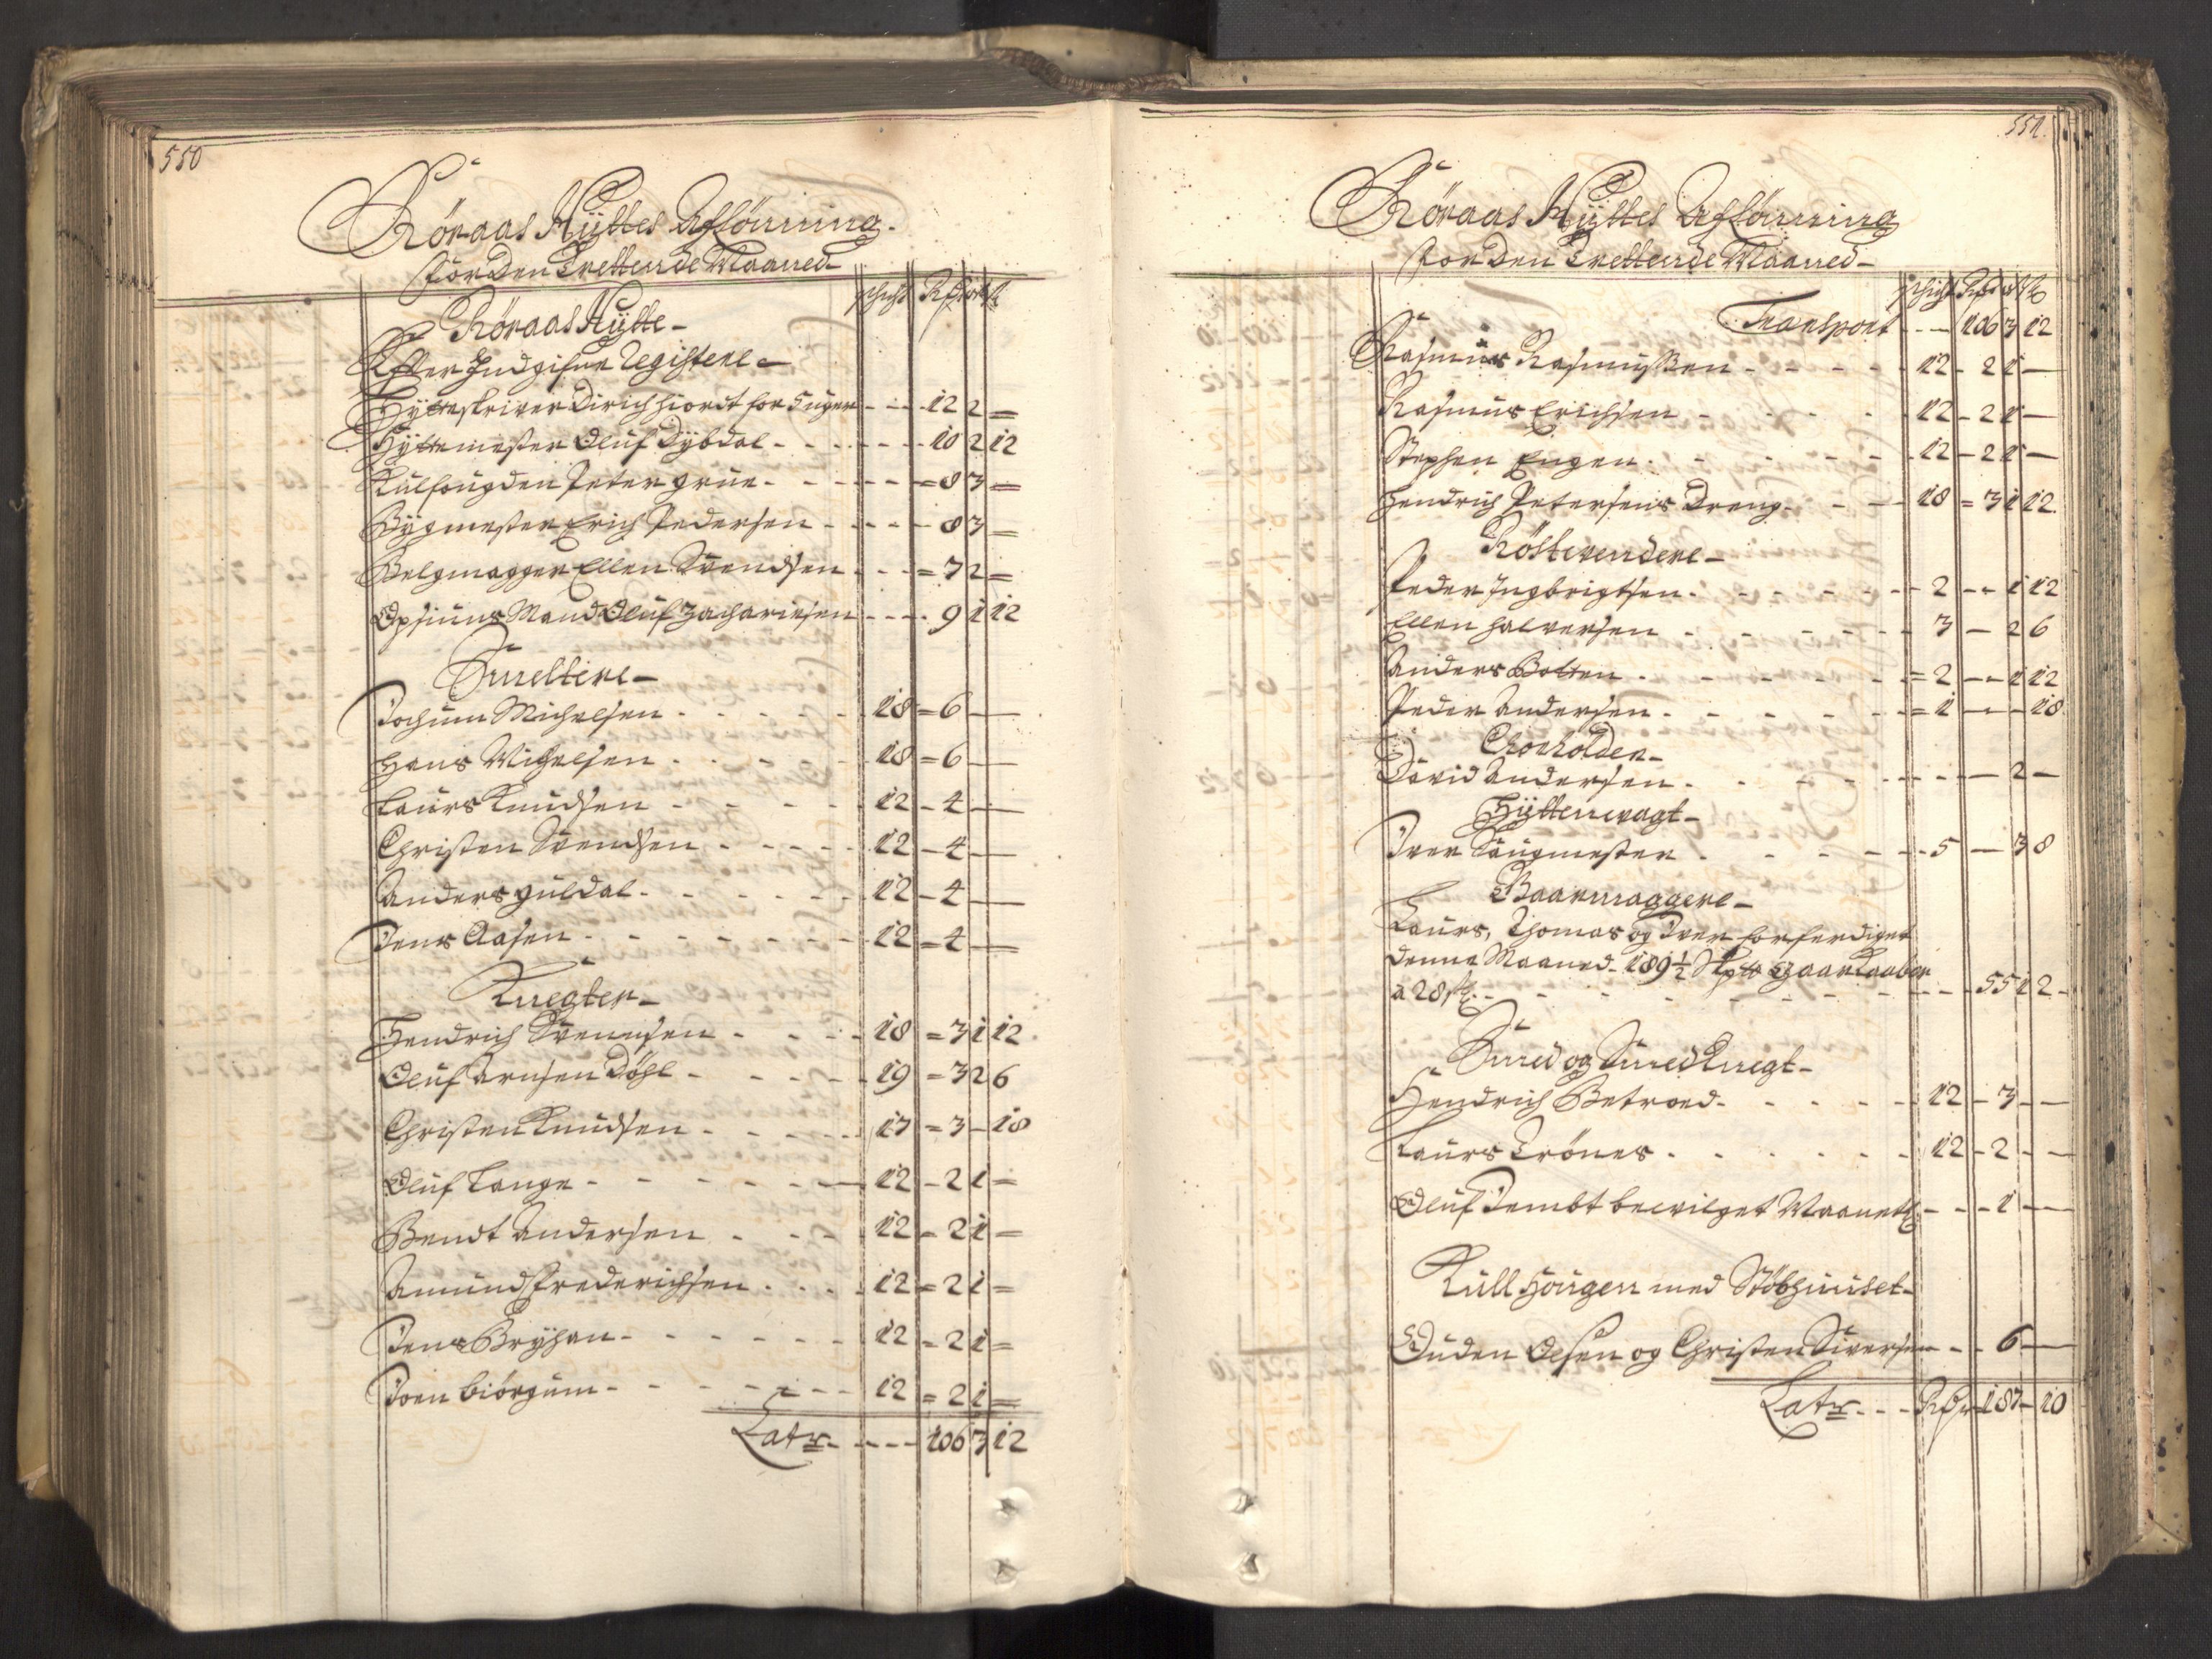 550
Röraas Hyttes Afflönning.
for den trettende Maaned
schicht Rdr ort ß
Röraas Hytte
Efter Indgifne Registere
Hytteskriver Dirich Hiordt for 5 uger - - - 12 2 =
Hyttemester Oluf Dybdal - - - 10 2 12
Kulfougden Peter Grue - - - = 8 3 =
Bygmester Erich Pedersen - - - 8 3 =
Belgmagger Ellen Svendsen - - - = 7 2 =
Opsiuns Mand Oluf Zachariesen - - - 9 1 12
Smeltere
Jochum Michelsen - - - 18 = 6 —
Hans Michelsen - - - 18 = 6 —
Laurs Knudsen - - - 12 - 4 —
Christen Svendsen - - - 12 - 4 —
Anders Guldal - - - 12 - 4 —
Jens Aasen - - - 12 = 4 —
Knegter
Hendrich Svensen - - - 18 = 3 1 12
Oluf Arnsen Döhl - - - 19 = 3 2 6
Christen Knudsen - - - 17 = 3 - 18
Oluf Lange - - - 12 - 2 1 =
Bendt Andersen - - - 12 - 2 1 =
Amund Frederichsen - - - 12 = 2 1 =
Jens Bryhan - - - 12 - 2 1 =
Joen Biörgum - - - 12 = 2 1 =
Latr - - - 106 3 12
551.
Röraas Hyttes Afflönning
for den trettende Maaned
schicht Rdr ort ß
Transport - - - 106 3 12
Rasmus Rasmussen - - - 12 - 2 1 —
Rasmus Erichsen - - - 12 - 2 1 —
Stephen Engen - - - 12 - 2 1 —
Hendrich Petersens Dreng - - - 18 = 3 1 12
Röstevendere
Peder Ingbrigtsen - - - 2 - - 1 12
Ellen Halversen - - - 3 — 2 6
Anders Bolten - - - = 2 - - 1 12
Peder Andersen - - - = 1 - - - 18
David Andersen - - - — 2 —
Hyttenvagt
Iver Saugmester - - - 5 — 3 8
Gaarmaggere
Laurs, Thomas og Iver forferdiget
denne Maaned 189½ Skp gaar Kaaber
a 28 ß - - - 55 1 2
Smed og Smed Knegt
Hendrich Betroed - - - 12 - 3 - —
Laurs Trönes - - - 12 - 2 - —
Oluf Jembt bewilget Maanetl. - - - 1 - —
Kull Hougen med Stöbhuuset
Ouden Olsen og Christen Siversen - - 6 —
Latr - - - Rdr 187 - 10